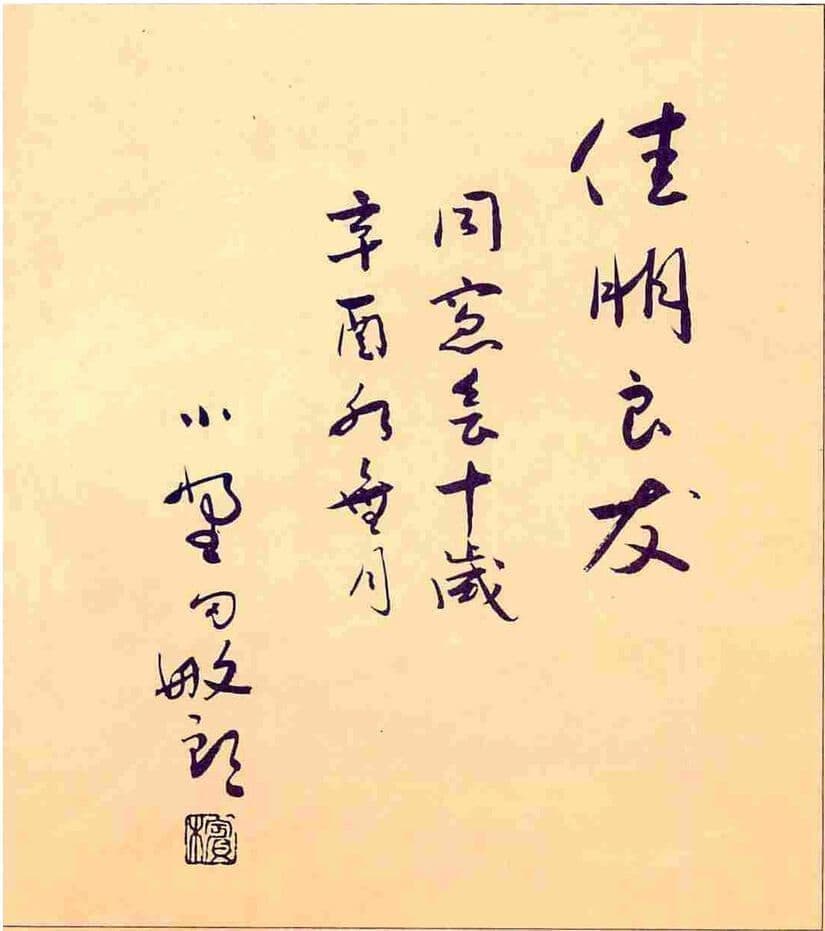 佳朋良友
同窓会十歳
辛酉水無月
小野田敏郎
檳